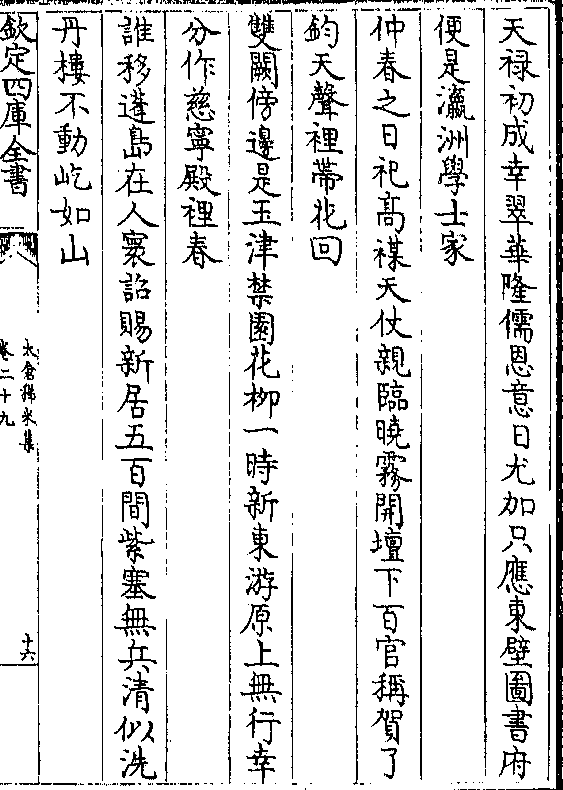 天禄初成幸翠華隆儒恩意日尤加只應東壁圖書府
便是瀛洲學士家
仲春之日祀髙禖天仗親臨曉霧開壇下百官稱賀了
鈞天聲裡帶花回
雙闕傍邊是玉津禁園花栁一時新東游原上無行幸
分作慈寧殿裡春
誰移蓬島在人寰詔賜新居五百間紫塞無兵清似洗
丹樓不動屹如山
欽定四庫全書
太倉稊米集
卷二十九
十六